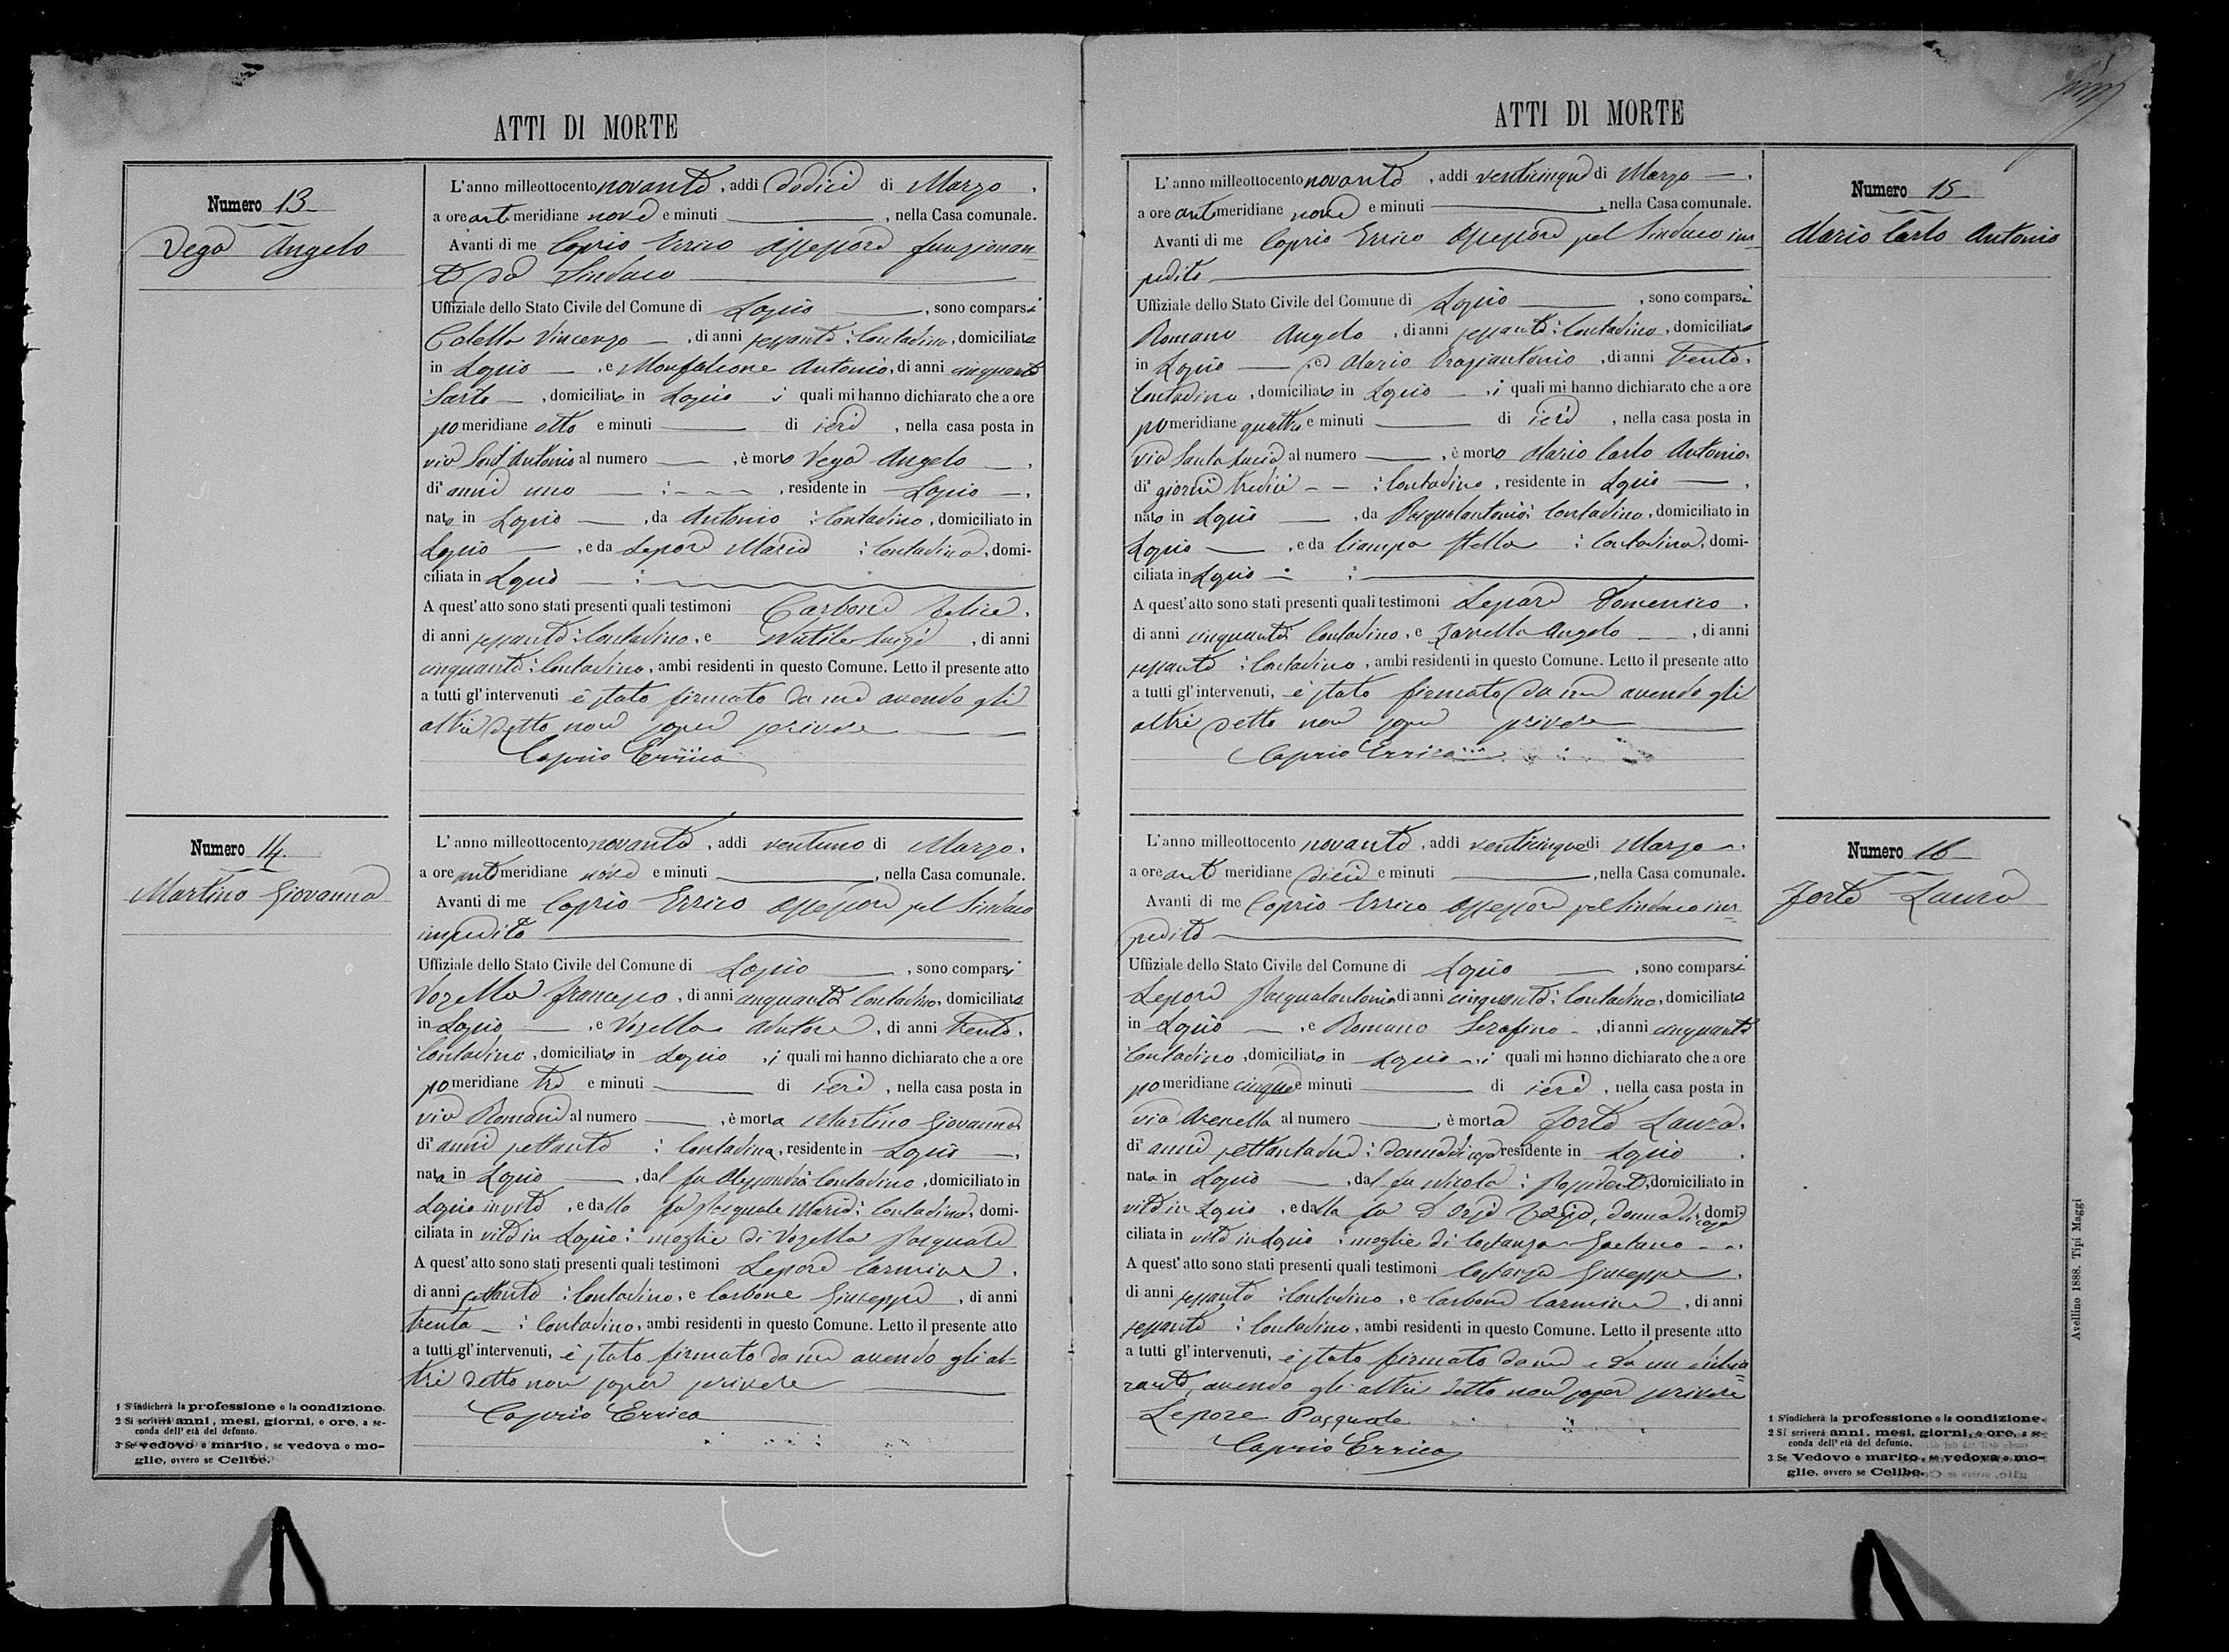 ATTI DI MORTE
Numero 13
Vega Angelo
L'anno milleottocento novanta, addì dodici di Marzo,
a ore anti meridiane nove e minuti, nella Casa comunale.
Avanti di me Caprio Errico Assessore funzionan
te da Sindaco
Uffiziale dello Stato Civile del Comune di Lapio, sono comparsi
Coletta Vincenzo, di anni sessanta: Contadino, domiciliato
in Lapio, e Monfalcone Antonio, di anni cinquanta
Sarto, domiciliato in Lapio i quali mi hanno dichiarato che a ore
po meridiane otto e minuti di ieri, nella casa posta in
via Sant'Antonio al numero, è morto Vega Angelo,
di anni uno, residente in Lapio,
nato in Lapio, da Antonio: Contadino, domiciliato in
Lapio, e da Lepore Maria: Contadina, domi-
ciliata in Lapio
A quest'atto sono stati presenti quali testimoni Carbone Felice,
di anni sessanta: Contadino, e Nutile Luigi, di anni
cinquanta: Contadino, ambi residenti in questo Comune. Letto il presente atto
a tutti gl'intervenuti è stato firmato da me avendo gli
altri detto non saper scrivere
Caprio Errico
Numero 14
Martino Giovanna
L'anno milleottocento novanta, addì ventuno di Marzo,
a ore anti meridiane nove e minuti, nella Casa comunale.
Avanti di me Caprio Errico Assessore pel Sindaco
impedito
Uffiziale dello Stato Civile del Comune di Lapio, sono comparsi
Vozella Francesco, di anni cinquanta Contadino, domiciliato
in Lapio, e Vozella, di anni trenta,
Contadino, domiciliato in Lapio, i quali mi hanno dichiarato che a ore
po meridiane tre e minuti di ieri, nella casa posta in
via Romani al numero, è morta Martino Giovanna
di anni settanta: Contadina, residente in Lapio,
nata in Lapio, dal fu Alessandro: Contadino, domiciliato in
Lapio in vita, e dalla fu Pasquale Maria: Contadina, domi-
ciliata in vita in Lapio: moglie di Vozella Pasquale
A quest'atto sono stati presenti quali testimoni Lepore Carmine,
di anni settanta: Contadino, e Carbone Giuseppe, di anni
trenta: Contadino, ambi residenti in questo Comune. Letto il presente atto
a tutti gl'intervenuti, è stato firmato da me avendo gli al=
tri detto non saper scrivere
Caprio Errico
1 S'indicherà la professione o la condizione.
2 Si scriverà anni, mesi, giorni, o ore, a se-
conda dell'età del defunto.
3 Se vedovo o marito, se vedova o mo-
glie, ovvero se Celibe.
ATTI DI MORTE
Numero 15
Mario Carlo Antonio
L'anno milleottocento novanta, addì venticinque di Marzo,
a ore anti meridiane nove e minuti, nella Casa comunale.
Avanti di me Caprio Errico Assessore pel Sindaco im=
pedito
Uffiziale dello Stato Civile del Comune di Lapio, sono comparsi
Romano Angelo, di anni sessanta: Contadino, domiciliato
in Lapio, ed Mario Biagiantonio, di anni trenta,
Contadino, domiciliato in Lapio, i quali mi hanno dichiarato che a ore
po meridiane quattro e minuti di ieri, nella casa posta in
via Santa Lucia al numero, è morto Mario Carlo Antonio,
di giorni tredici: Contadino, residente in Lapio,
nato in Lapio, da Pasqualantonio: Contadino, domiciliato in
Lapio, e da Ciampa Stella: Contadina, domi-
ciliata in Lapio
A quest'atto sono stati presenti quali testimoni Lepore Domenico,
di anni cinquanta Contadino, e Angelo, di anni
sessanta: Contadino, ambi residenti in questo Comune. Letto il presente atto
a tutti gl'intervenuti, è stato firmato da me avendo gli
altri detto non saper scrivere
Caprio Errico
Numero 16
Forte Laura
L'anno milleottocento novanta, addì venticinque di Marzo,
a ore anti meridiane dieci e minuti, nella Casa comunale.
Avanti di me Caprio Errico Assessore pel Sindaco im=
pedito
Uffiziale dello Stato Civile del Comune di Lapio, sono comparsi
Lepore Pasqualantonio di anni cinquanta: Contadino, domiciliato
in Lapio, e Romano Serafino, di anni cinquanta
Contadino, domiciliato in Lapio, i quali mi hanno dichiarato che a ore
po meridiane cinque e minuti di ieri, nella casa posta in
via Arenella al numero, è morta Forte Laura,
di anni settantadue: donna di casa residente in Lapio,
nata in Lapio, dal fu Nicola: Possidente, domiciliato in
vita in Lapio, e dalla fu, donna di casa domi-
ciliata in vita in Lapio: moglie di Costanza Gaetano
A quest'atto sono stati presenti quali testimoni Costanza Giuseppe,
di anni sessanta: Contadino, e Carbone Carmine, di anni
sessanta: Contadino, ambi residenti in questo Comune. Letto il presente atto
a tutti gl'intervenuti, è stato firmato da me e da un dichia
rante, avendo gli altri detto non saper scrivere
Lepore Pasquale
Caprio Errico
1 S'indicherà la professione o la condizione.
2 Si scriverà anni, mesi, giorni, o ore, a se-
conda dell'età del defunto.
3 Se Vedovo o marito, se vedova o mo-
glie, ovvero se Celibe.
Avellino 1888. Tipi Maggi